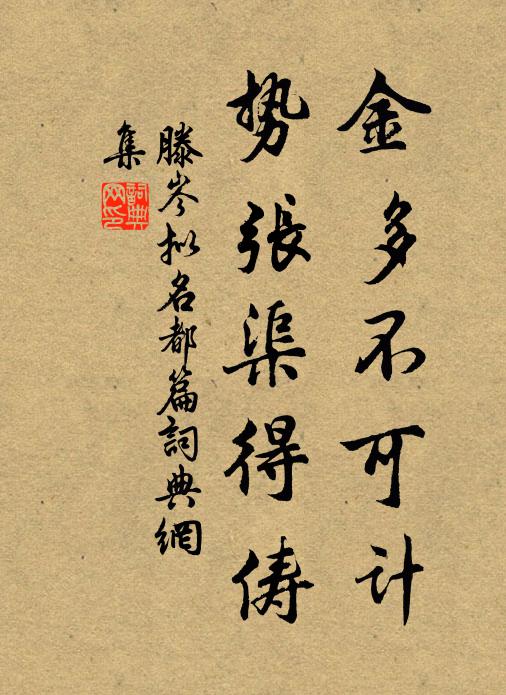 金多不可计
势張渠得俦
滕岑拟名都篇詞典網
集
詞典网印